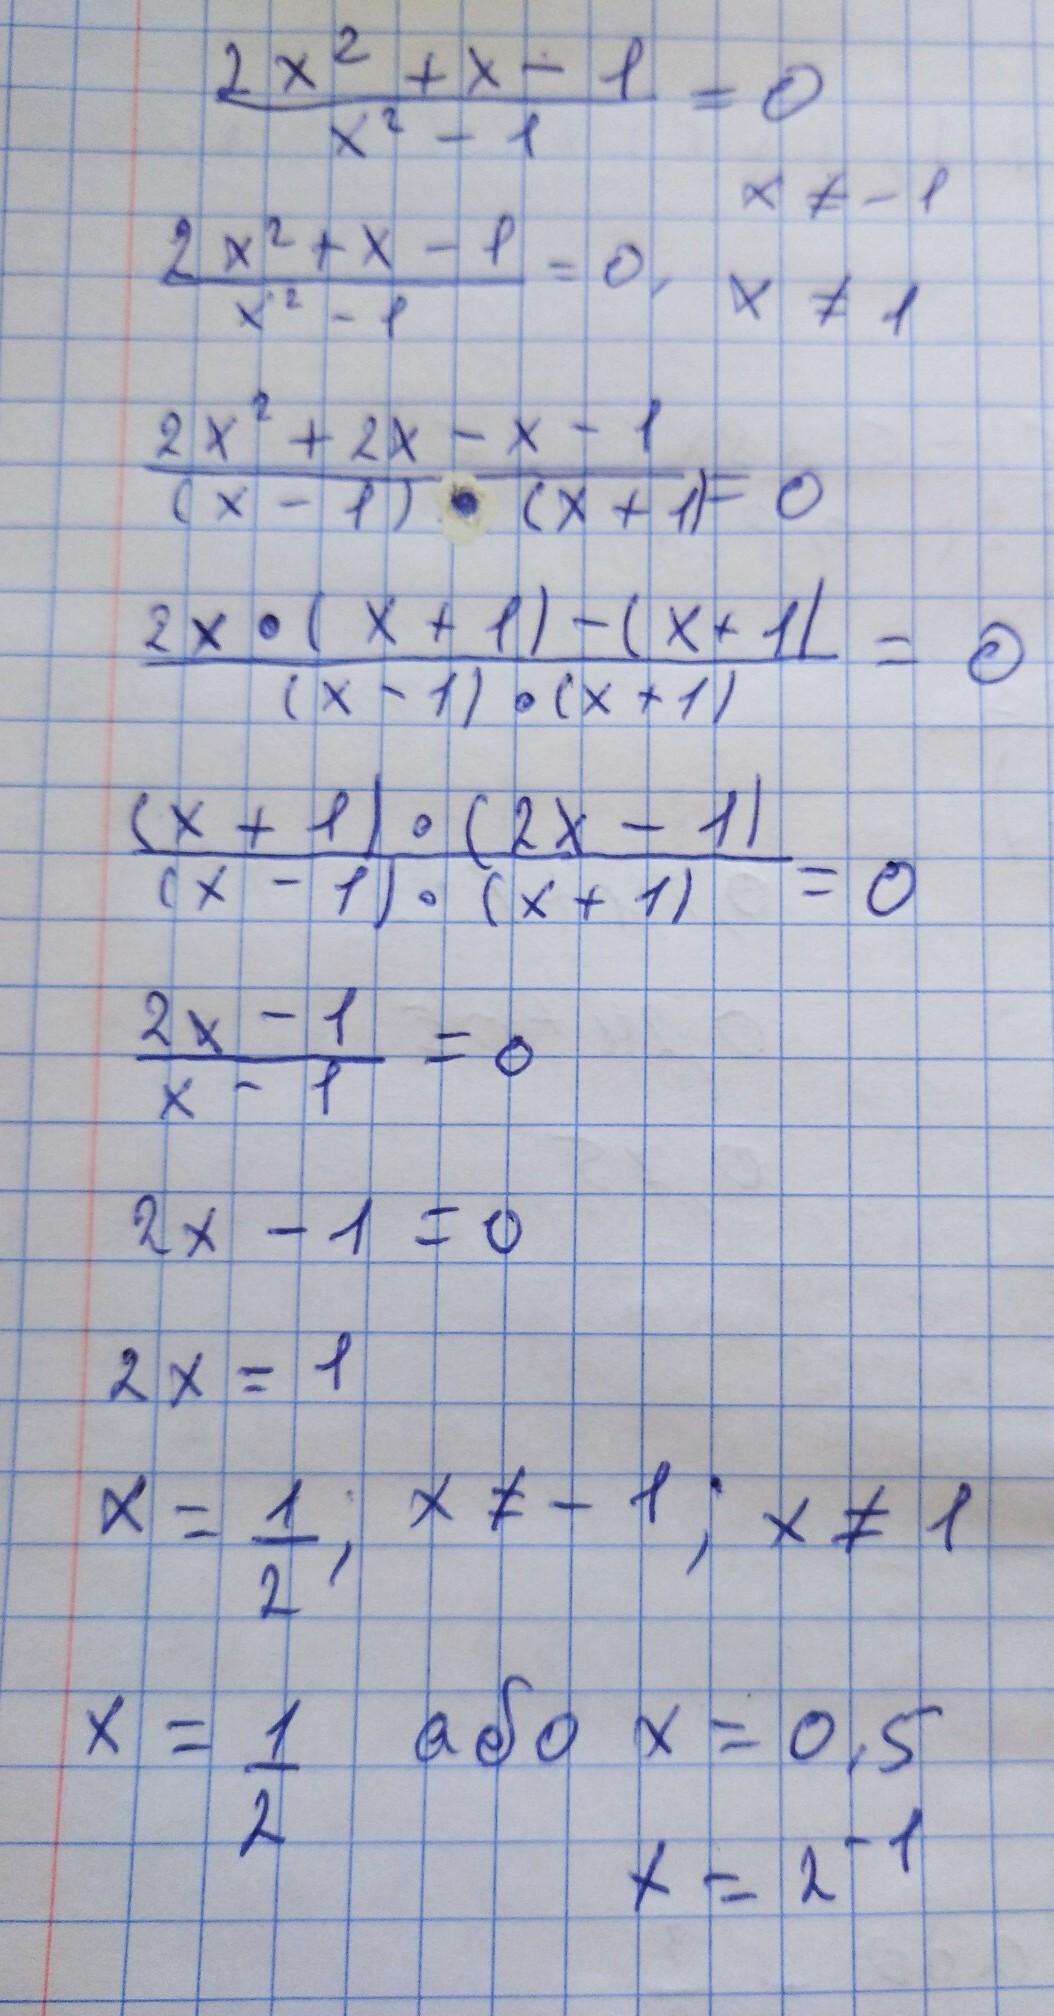 (2x² + x - 1)/(x² - 1) = 0
x ≠ -1
(2x² + x - 1)/(x² - 1) = 0, x ≠ 1
(2x² + 2x - x - 1)/((x - 1) • (x + 1)) = 0
(2x • (x + 1) - (x + 1))/((x - 1) • (x + 1)) = 0
((x + 1) • (2x - 1))/((x - 1) • (x + 1)) = 0
(2x - 1)/(x - 1) = 0
2x - 1 = 0
2x = 1
x = 1/2; x ≠ -1; x ≠ 1
x = 1/2 або x = 0,5
x = 2⁻¹